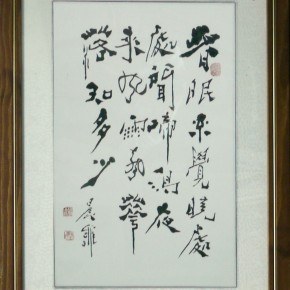 春眠不覺曉處
處聞啼鳥夜
来風雨聲華
落知多少